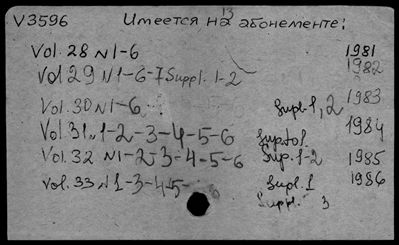 V3596 Имеется на 13 абонементе:
Vol. 28 N1-6 1981
Vol 29 N1-6-7 Suppl. 1-2 1982
Vol. 30 N1-6 Supl. 1, 2 1983
Vol. 31 N1-2-3-4-5-6 1984
Vol. 32 N1-2-3-4-5-6 Sup. 1-2 1985
Vol. 33 N1-3-4-5- 6 Supl. 1 1986
Suppl. 3